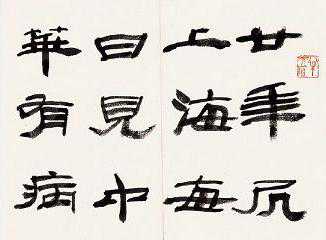 廿年凥
上海每
日見中
華有病